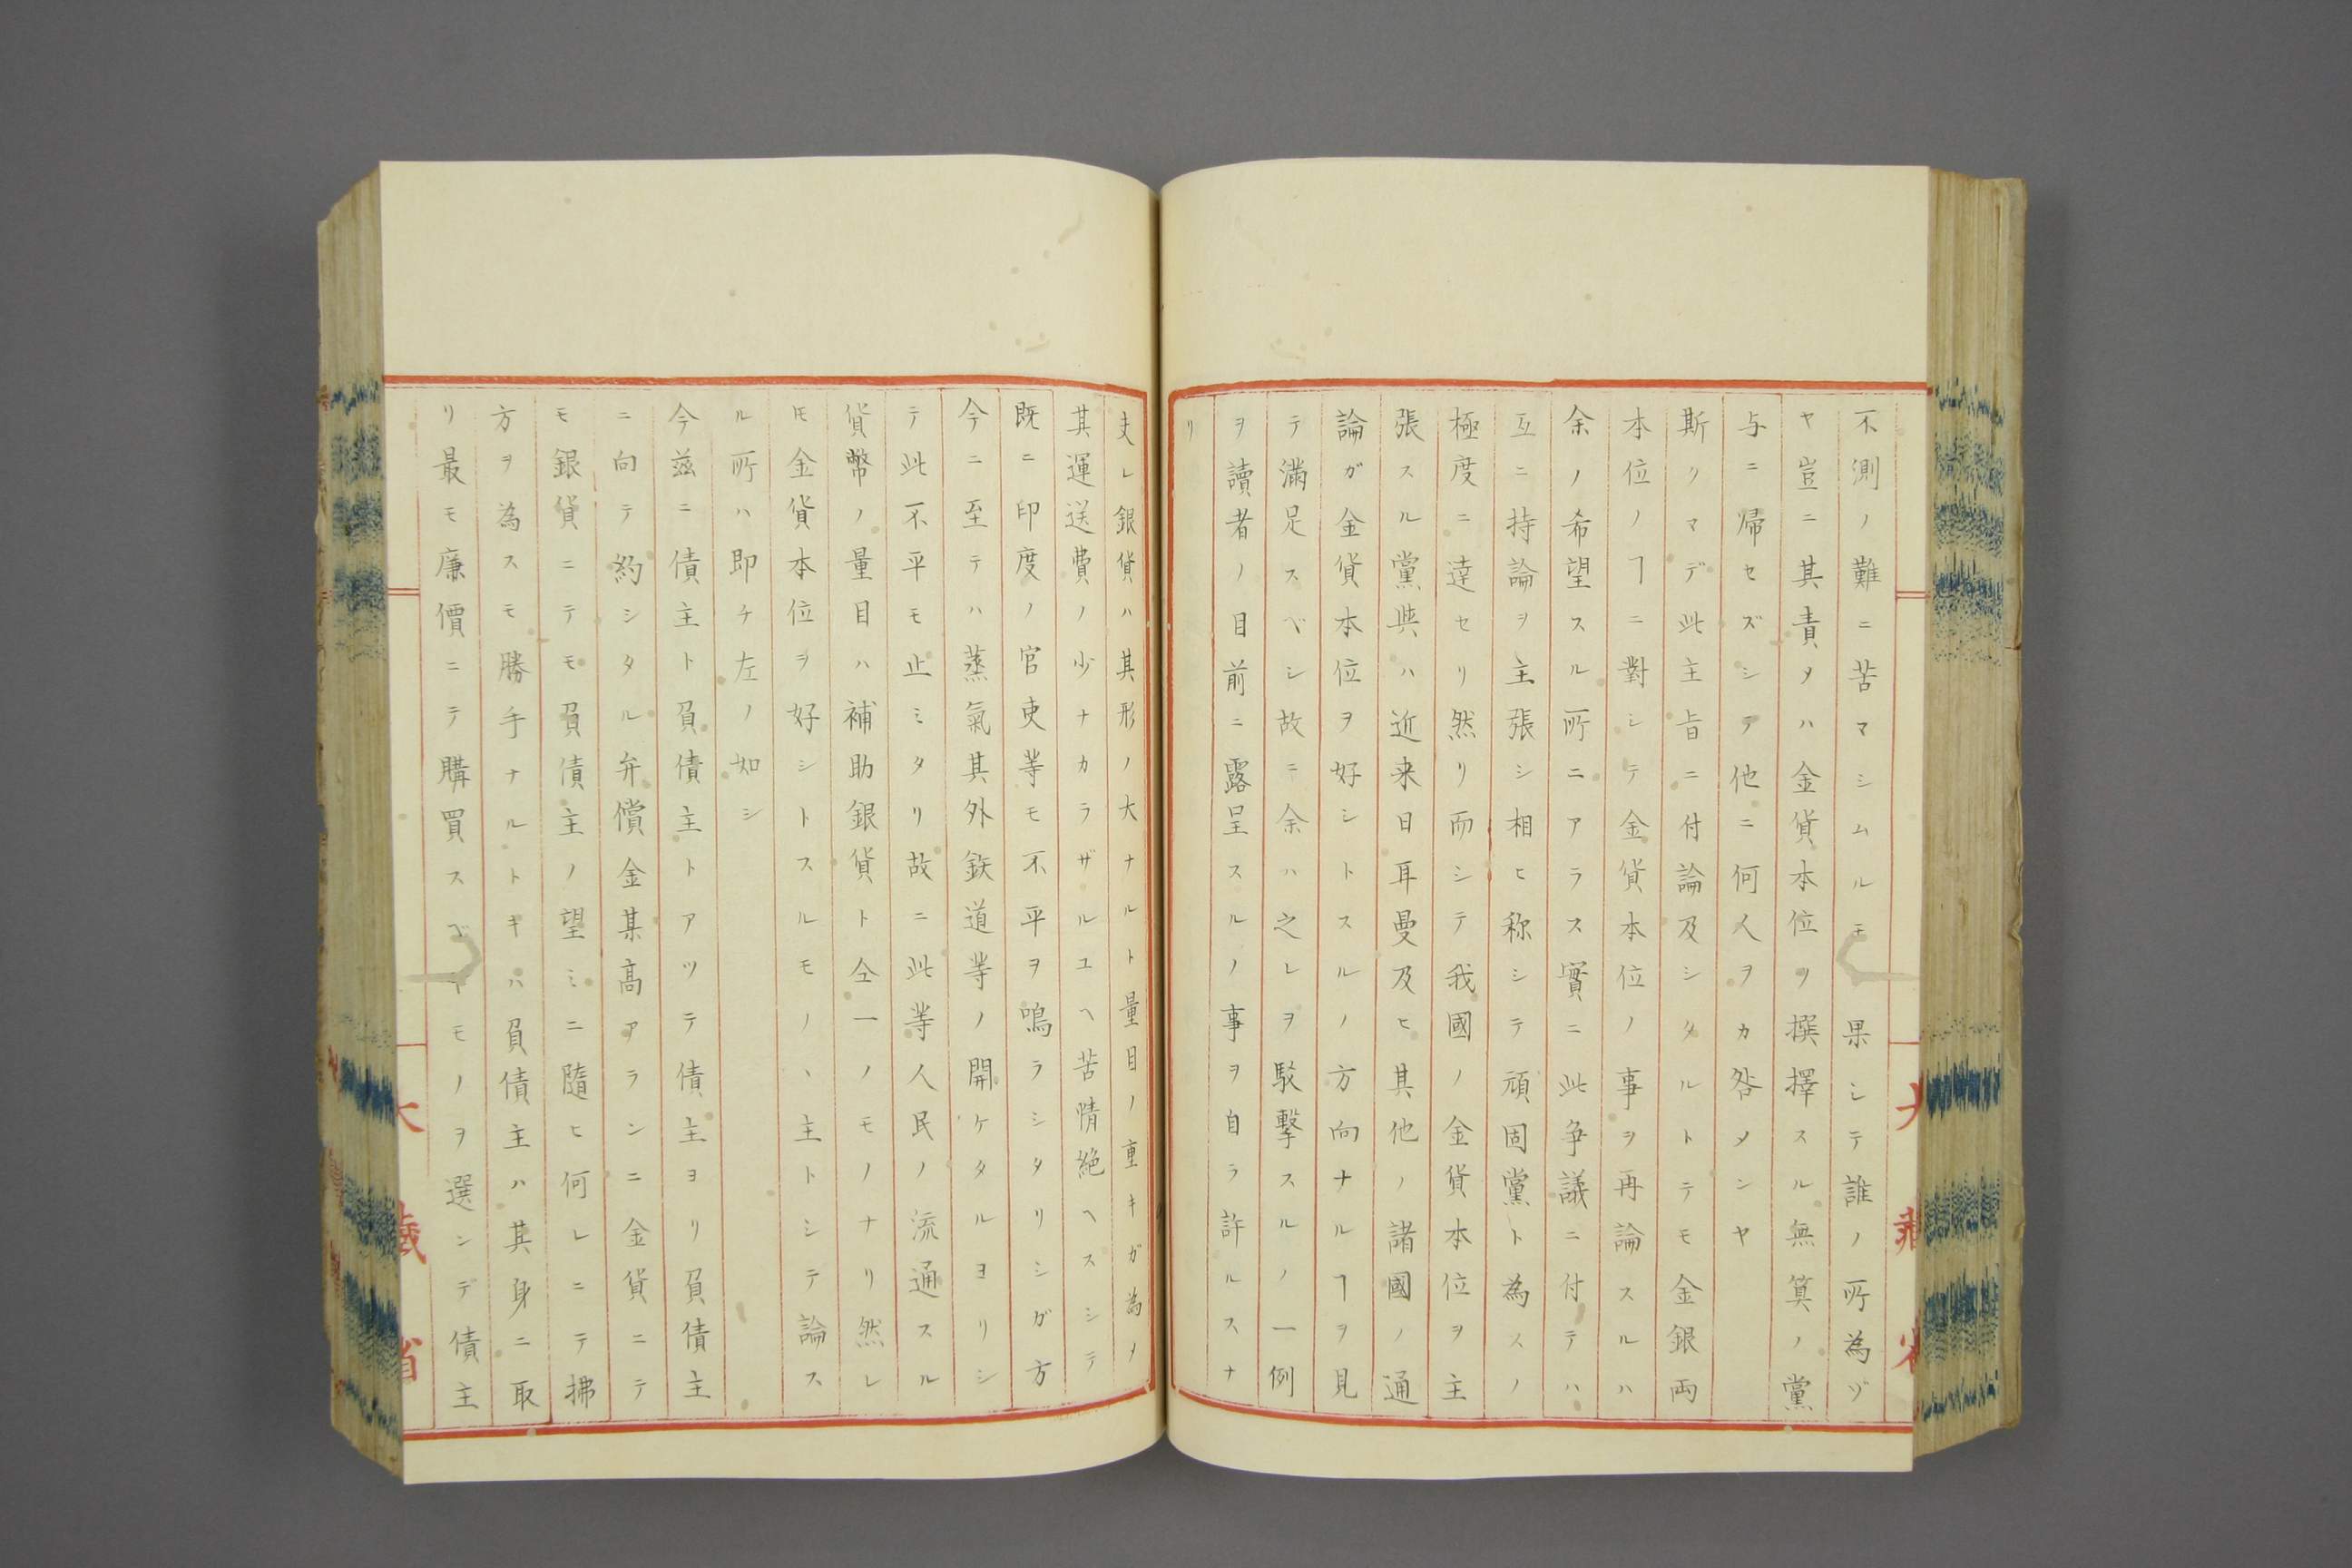 不測ノ難ニ苦マシムルモ果シテ誰ノ所為ゾ
ヤ豈ニ其責タハ金貨本位ヲ撰擇スル無算ノ黨
与ニ帰セズシテ他ニ何人ヲカ咎メンヤ
斯クマデ此主旨ニ付論及シタルトテモ金銀両
本位ノヿニ對シテ金貨本位ノ事ヲ再論スルハ
余ノ希望スル所ニアラス實ニ此争議ニ付テハ
互ニ持論ヲ主張シ相ヒ称シテ頑固黨ト為スノ
極度ニ達セリ然リ而シテ我國ノ金貨本位ヲ主
張スル黨與ハ近来日耳曼及ヒ其他ノ諸國ノ通
論ガ金貨本位ヲ好シトスルノ方向ナルヿヲ見
テ滿足スベシ故ニ余ハ之レヲ駁擊スルノ一例
ヲ讀者ノ目前ニ露呈スルノ事ヲ自ラ許ルスナ
リ
夫レ銀貨ハ其形ノ大ナルト量目ノ重キガ為メ
其運送費ノ少ナカラザルユヘ苦情絶ヘスシテ
既ニ印度ノ官吏等モ不平ヲ鳴ラシタリシガ方
今ニ至テハ蒸氣其外鉄道等ノ開ケタルヨリシ
テ此不平モ止ミタリ故ニ此等人民ノ流通スル
貨幣ノ量目ハ補助銀貨ト仝一ノモノナリ然レ
𪜈金貨本位ヲ好シトスルモノヽ主トシテ論ス
ル所ハ即チ左ノ如シ
今茲ニ債主ト負債主トアツテ債主ヨリ負債主
ニ向テ約シタル弁償金某高アランニ金貨ニテ
モ銀貨ニテモ負債主ノ望ミニ隨ヒ何レニテ拂
方ヲ為スモ勝手ナルトキハ負債主ハ其身ニ取
リ最モ廉價ニテ購買スベキモノヲ選ンデ債主
大藏省